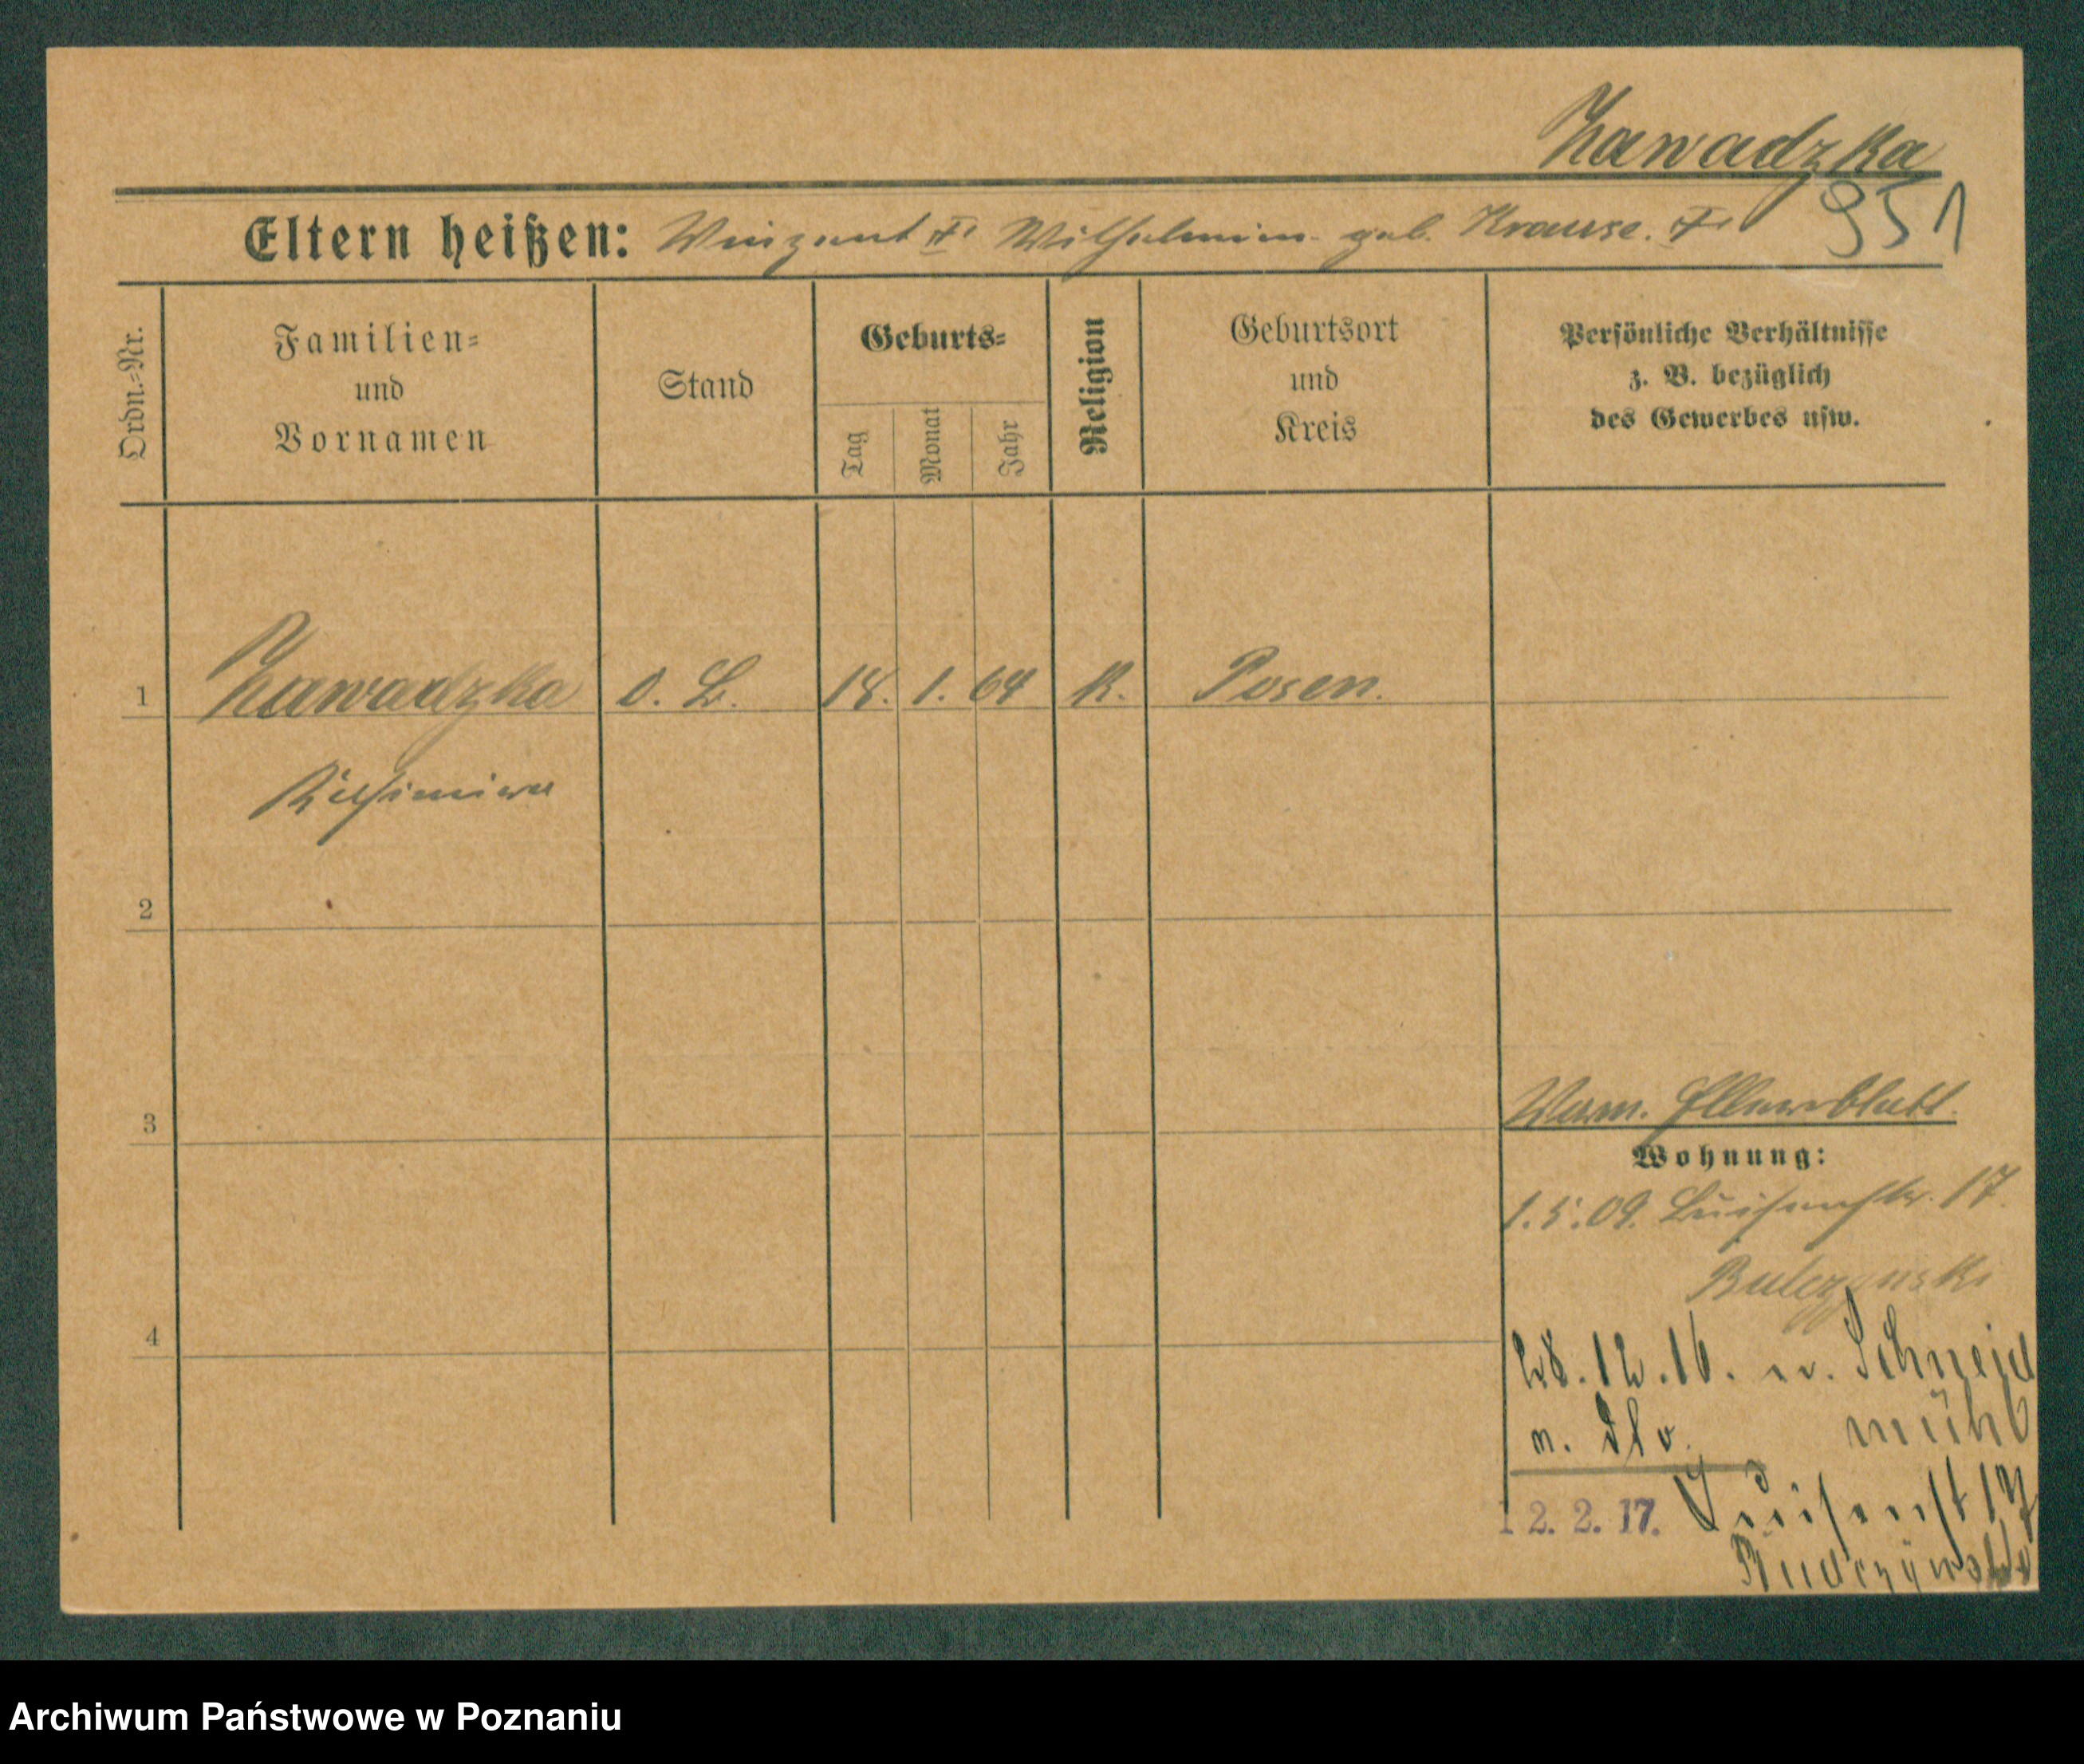 Zawadzka
951
Eltern heißen: Vinzent † Wilhelmine geb. Krause. †
Ordn.=Nr.
Familien=
und
Vornamen
Stand
Geburts=
Tag
Monat
Jahr
Religion
Geburtsort
und
Kreis
Persönliche Verhältnisse
z. B. bezüglich
des Gewerbes usw.
1 Zawadzka o. B. 18. 1. 64 K. Posen.
Kasimira
2
3
4
Wohnung:
1.5.09. Luisenstr. 17.
28.12.16. v. Schneide
mühl
12. 2. 17. Luisenst 17
Archiwum Państwowe w Poznaniu